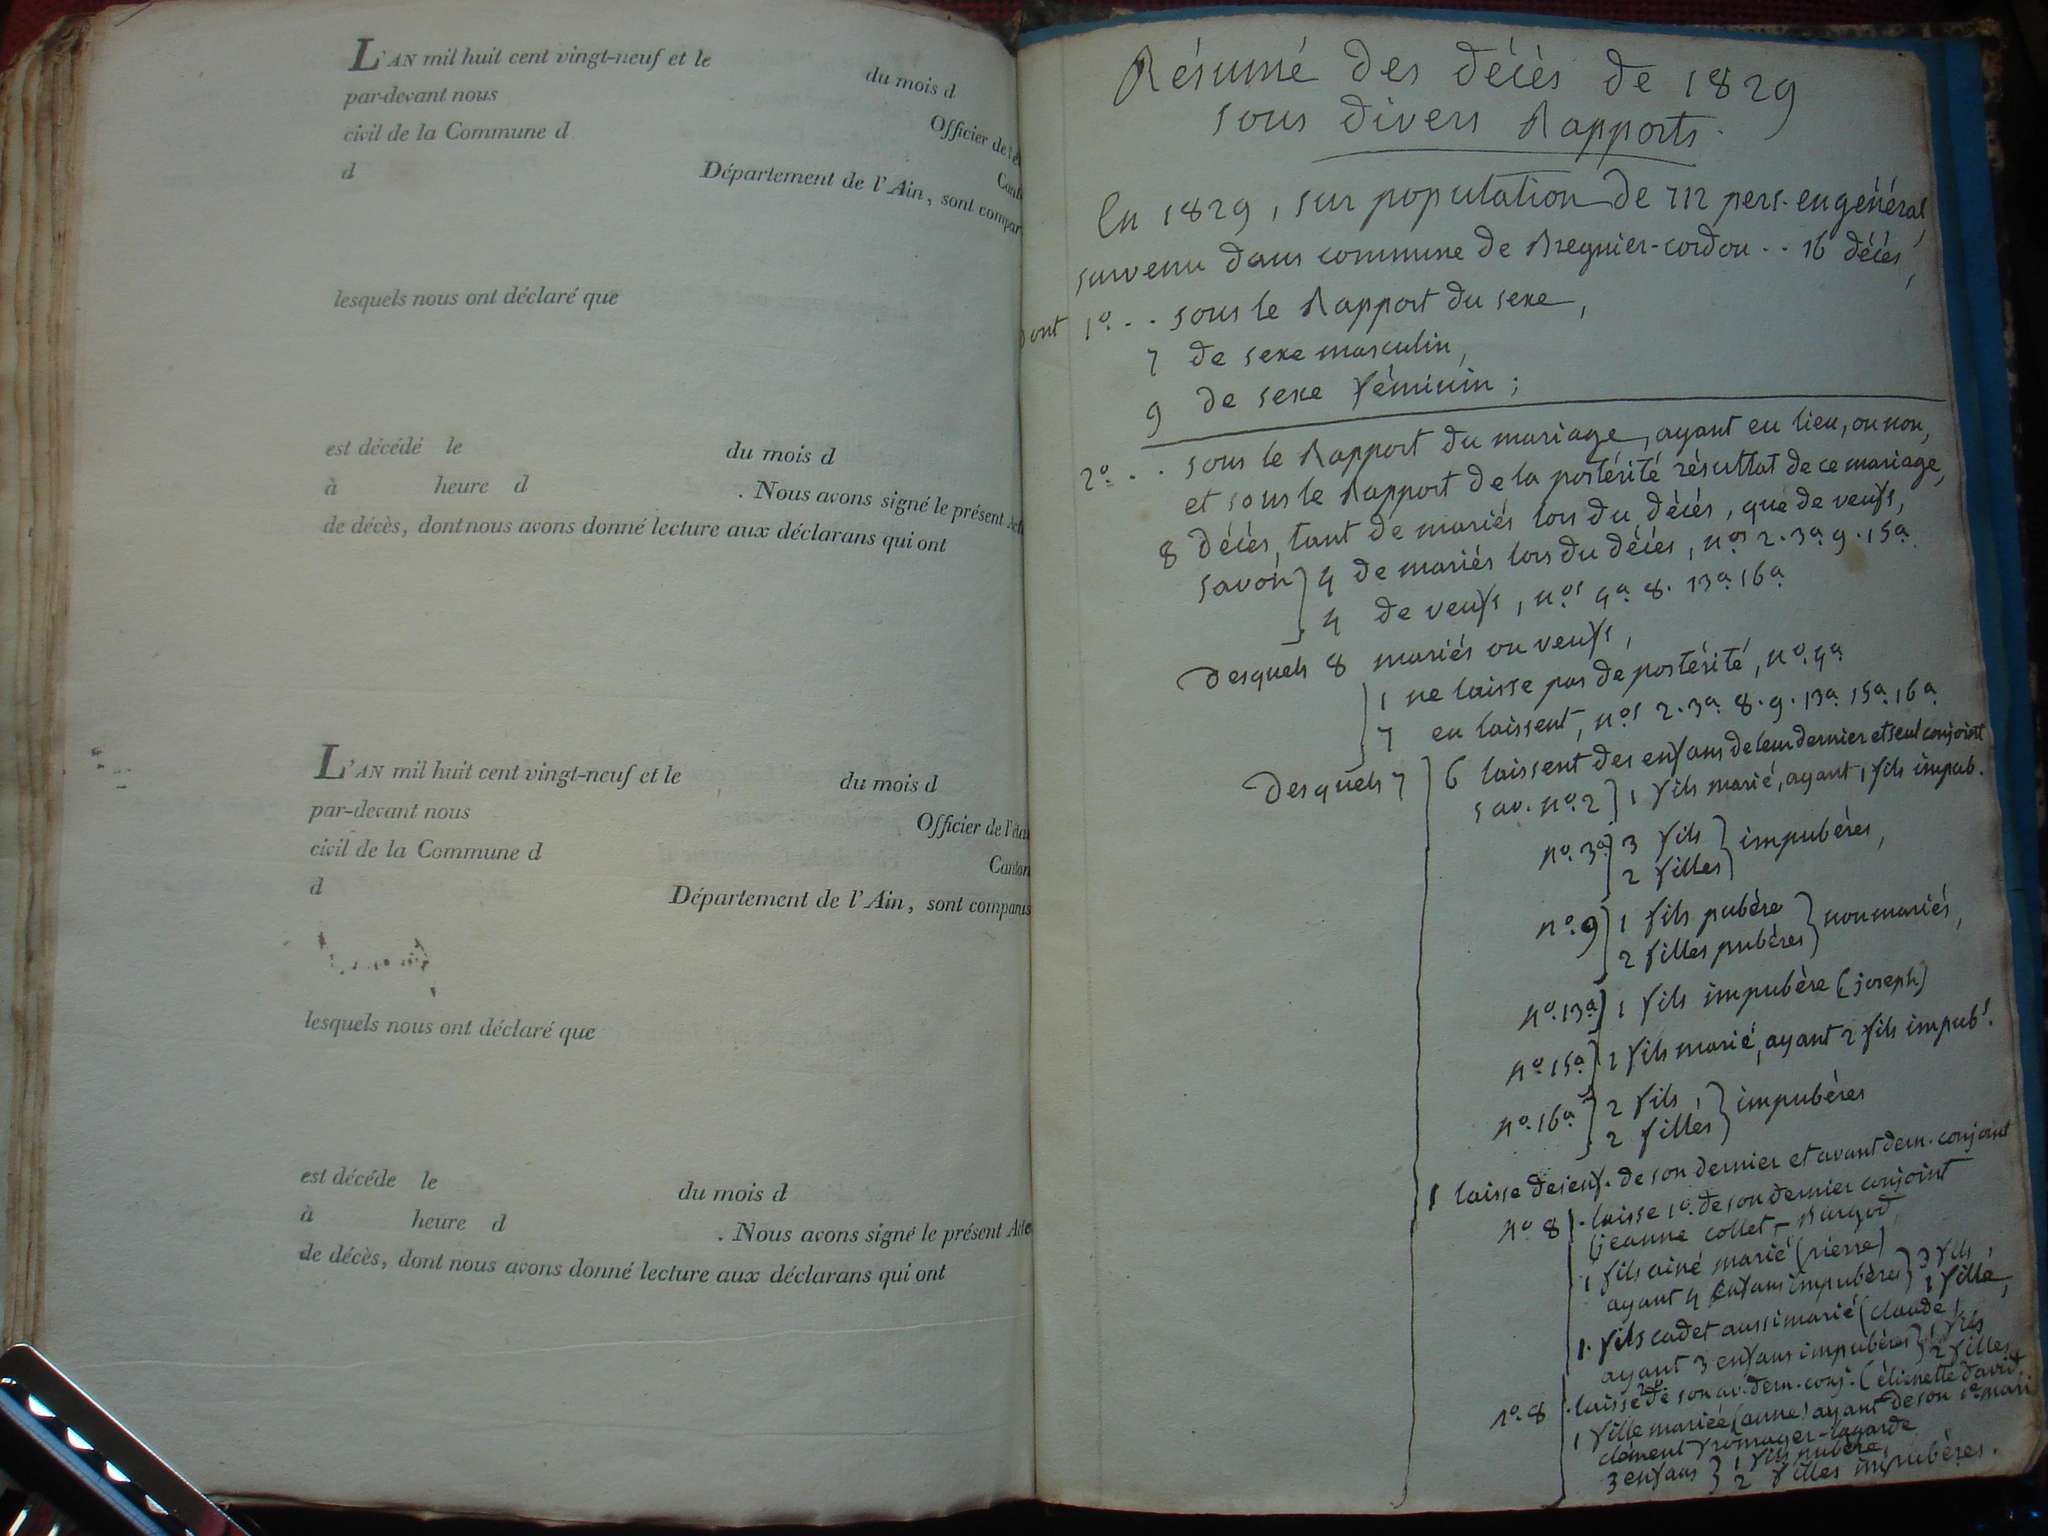 L'AN mil huit cent vingt-neuf et le du mois d
par-devant nous Officier de l'é
civil de la Commune d Cant
d Département de l'Ain, sont compar
lesquels nous ont déclaré que
est décédé le du mois d
à heure d . Nous avons signé le présent Act
de décès, dont nous avons donné lecture aux déclarans qui ont
L'AN mil huit cent vingt-neuf et le du mois d
par-devant nous Officier de l'éta
civil de la Commune d Canton
d Département de l'Ain, sont comparus
lesquels nous ont déclaré que
est décéde le du mois d
à heure d . Nous avons signé le présent Acte
de décès, dont nous avons donné lecture aux déclarans qui ont
Résumé des décès de 1829
sous divers Rapports.
En 1829, sur population de 712 pers. en général,
survenu dans commune de Bregnier-cordon .. 16 décès,
Dont 1º. . . sous le Rapport du sexe,
7 de sexe masculin,
9 de sexe féminin ;
2º. . . sous le Rapport du mariage, ayant eu lieu, ou non,
et sous le Rapport de la postérité résultat de ce mariage,
8 décès, tant de mariés lors du décès, que de veufs,
savoir } 4 de mariés lors du décès, nos 2. 3a. 9. 15a.
4 de veufs, nos 4a. 8. 13a. 16a.
Desquels 8 mariés ou veufs,
1 ne laisse pas de postérité, no. 4a.
7 en laissent, nos 2. 3a. 8. 9. 13a. 15a. 16a.
Desquels 7 } 6 laissent des enfans de leur dernier et seul conjoint
sav. no. 2 } 1 fils marié, ayant 1 fils impub.
no. 3a. } 3 fils } impubères,
2 filles
no. 9 } 1 fils pubère } non mariés,
2 filles pubères
no. 13a. } 1 fils impubère (joseph)
no. 15a. } 1 fils marié, ayant 2 fils impub.
no. 16a. } 2 fils, } impubères
2 filles
1 laisse des enf. de son dernier et avant dern. conjoint
no 8 } . laisse 1º. de son dernier conjoint
(jeanne collet-Burgod,
1 fils ainé marié (pierre)
ayant 4 enfans impubères } 3 fils,
1 fille,
1. fils cadet aussi marié (claude,
ayant 3 enfans impubères } 1 fils
2 filles,
no. 8 . laisse 2º de son av. dern. conj. (étienette david,
1 fille mariée (anne) ayant de son 1er mari
clément fromager-lagarde
3 enfans } 1 fils pubère,
2 filles impubères.